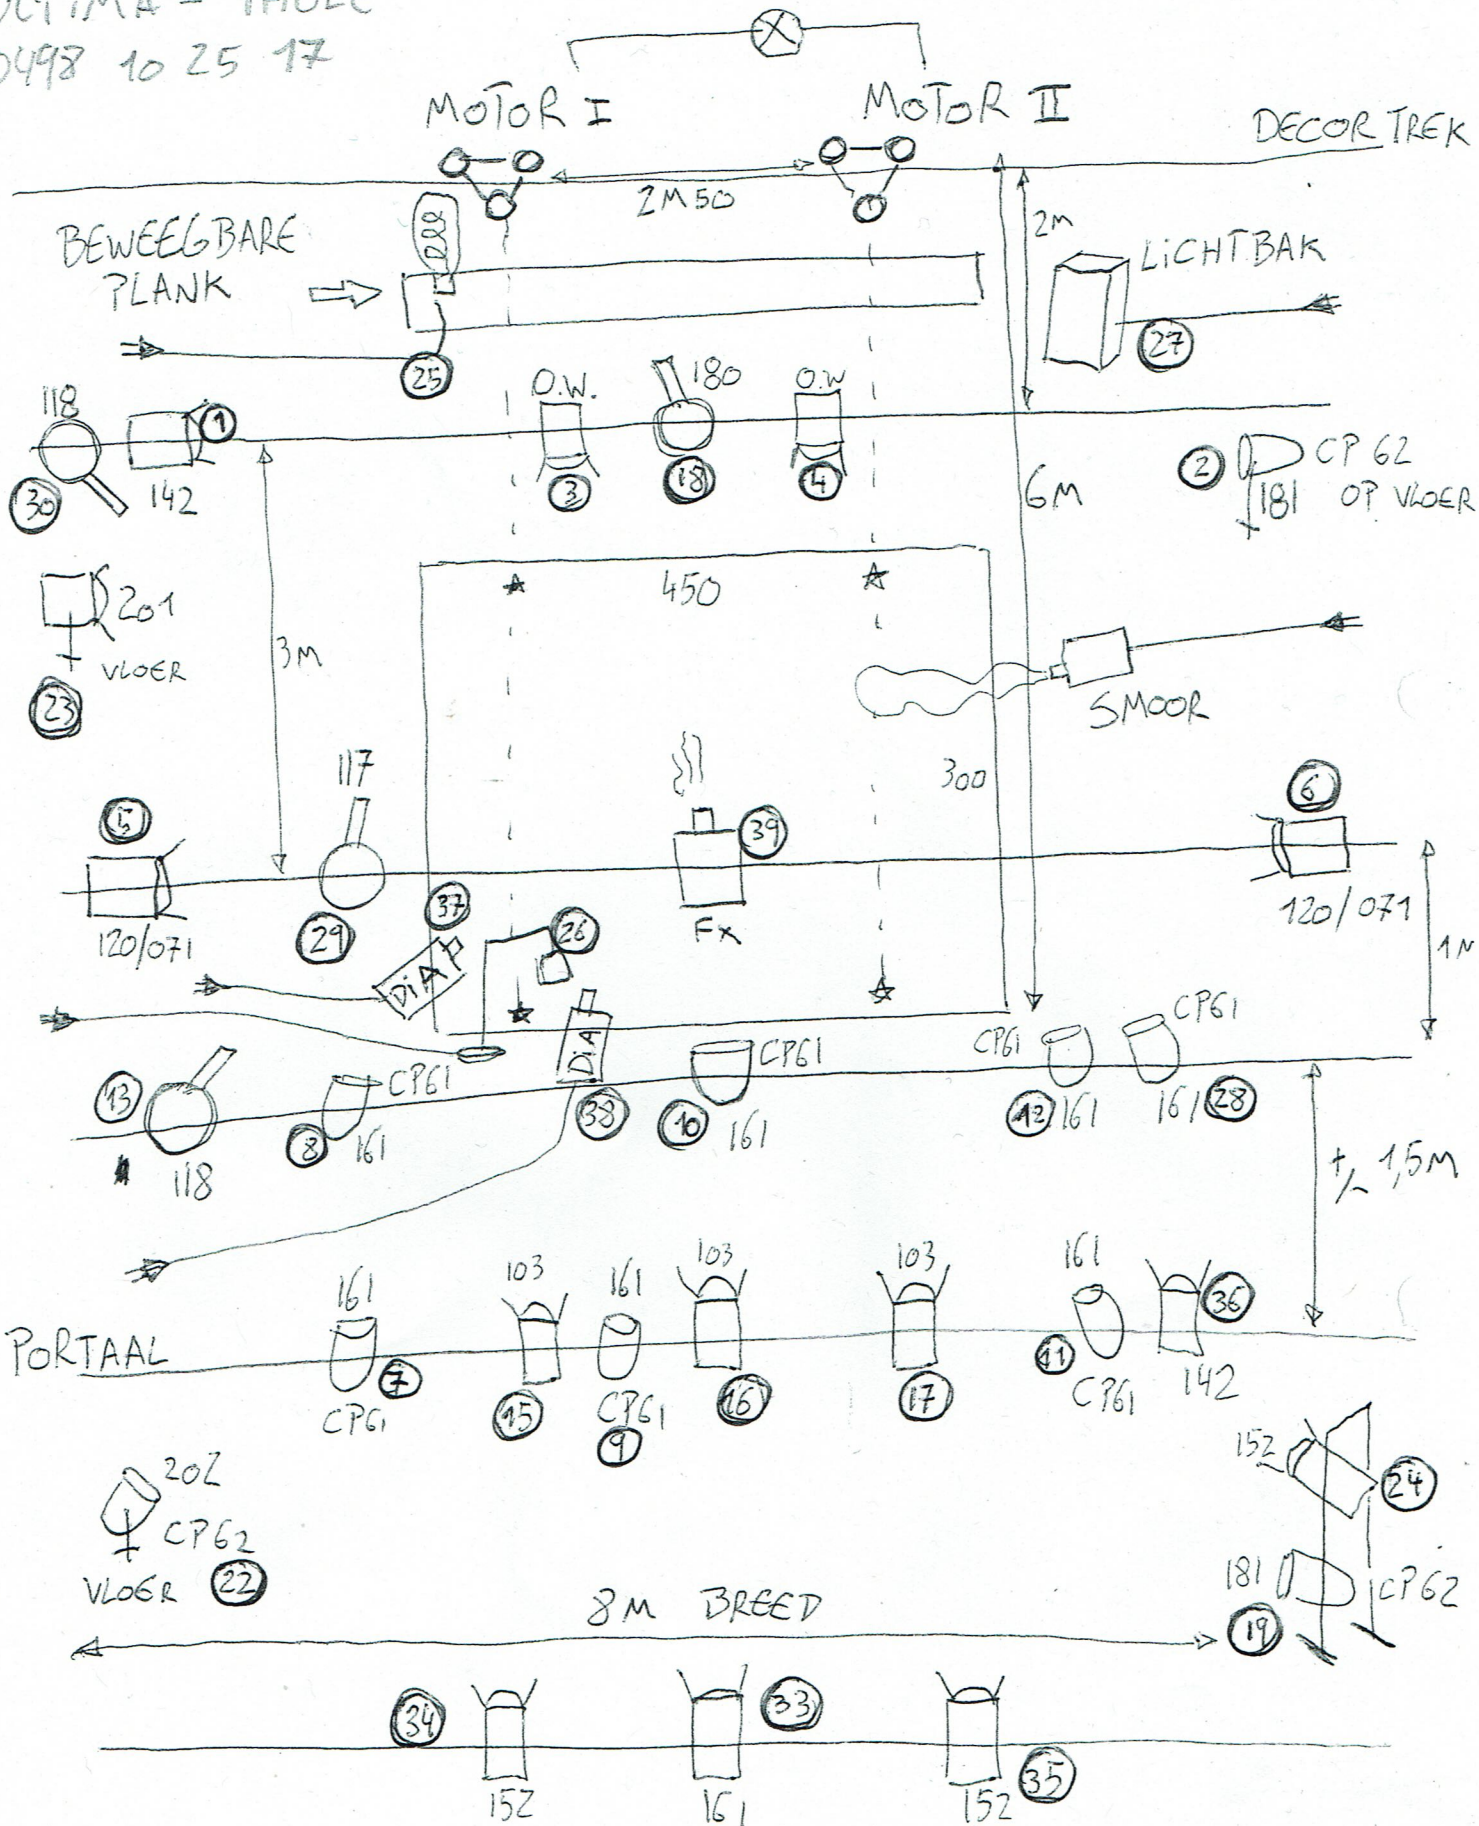 0498 10 25 17
MOTOR I
MOTOR II
DECOR TREK
2M50
2M
BEWEEGBARE
PLANK
LiCHTBAK
27
25
118
1
O.W.
180
O.W
30
142
3
18
4
2
CP 62
181
OP VLOER
6M
201
VLOER
23
3M
450
SMOOR
300
117
5
39
6
120/071
29
37
26
FX
120/071
DiAP
CP61
DiA
CP61
CP61
CP61
13
118
8
161
38
10
161
12
161
161
28
+/- 1,5M
PORTAAL
161
103
161
103
103
161
36
7
CP61
15
CP61
9
16
17
11
CP61
142
202
CP62
VLOER
22
152
24
181
CP62
19
8M BREED
34
33
35
152
161
152